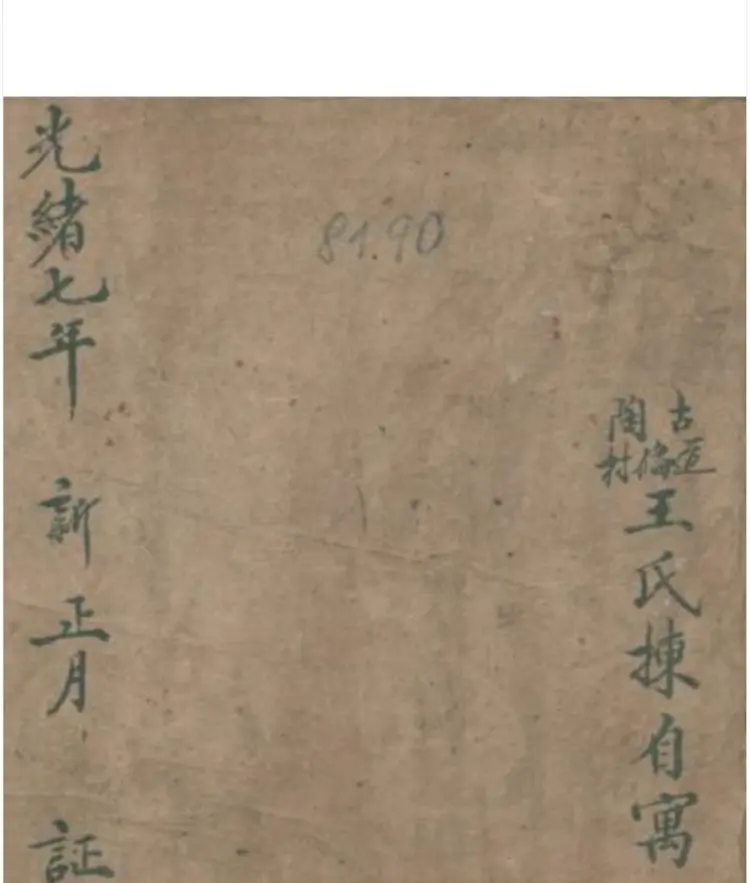 古道
陶倫村
王氏揀自寓
81.90
光緒七年 新正月 証